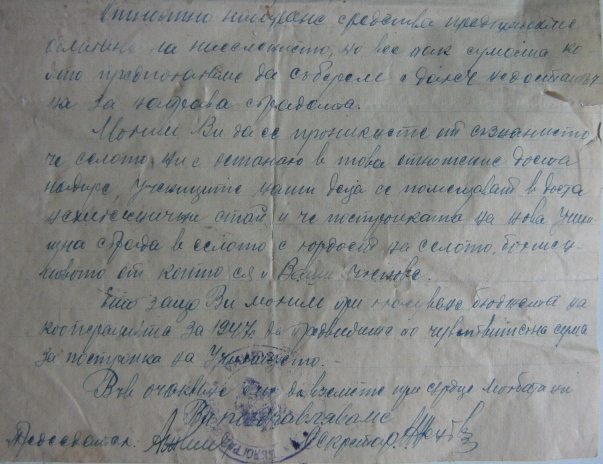 средства предприехме
на населението, но все пак сумата ко-
ято предполагаме да съберем е далеч недостатъч-
на за направа сградата.
Молим Ви да се проникнете от съзнанието
че селото ни е останало в това отношение доста
назадъ, учениците наши деца се помещават в доста
нехигиенични стаи и че постройката на нова Учи-
лищна сграда в селото е гордост на селото,
от които са и Ваши членове.
Ето защо Ви молим при гласуване бюджета на
кооперацията за 1947 г. да предвидите по чувствителна сума
за постройка на Училището.-
Във очакване да вземете при сърце молбата ни
Ви поздравляваме
Председател: Секретар: